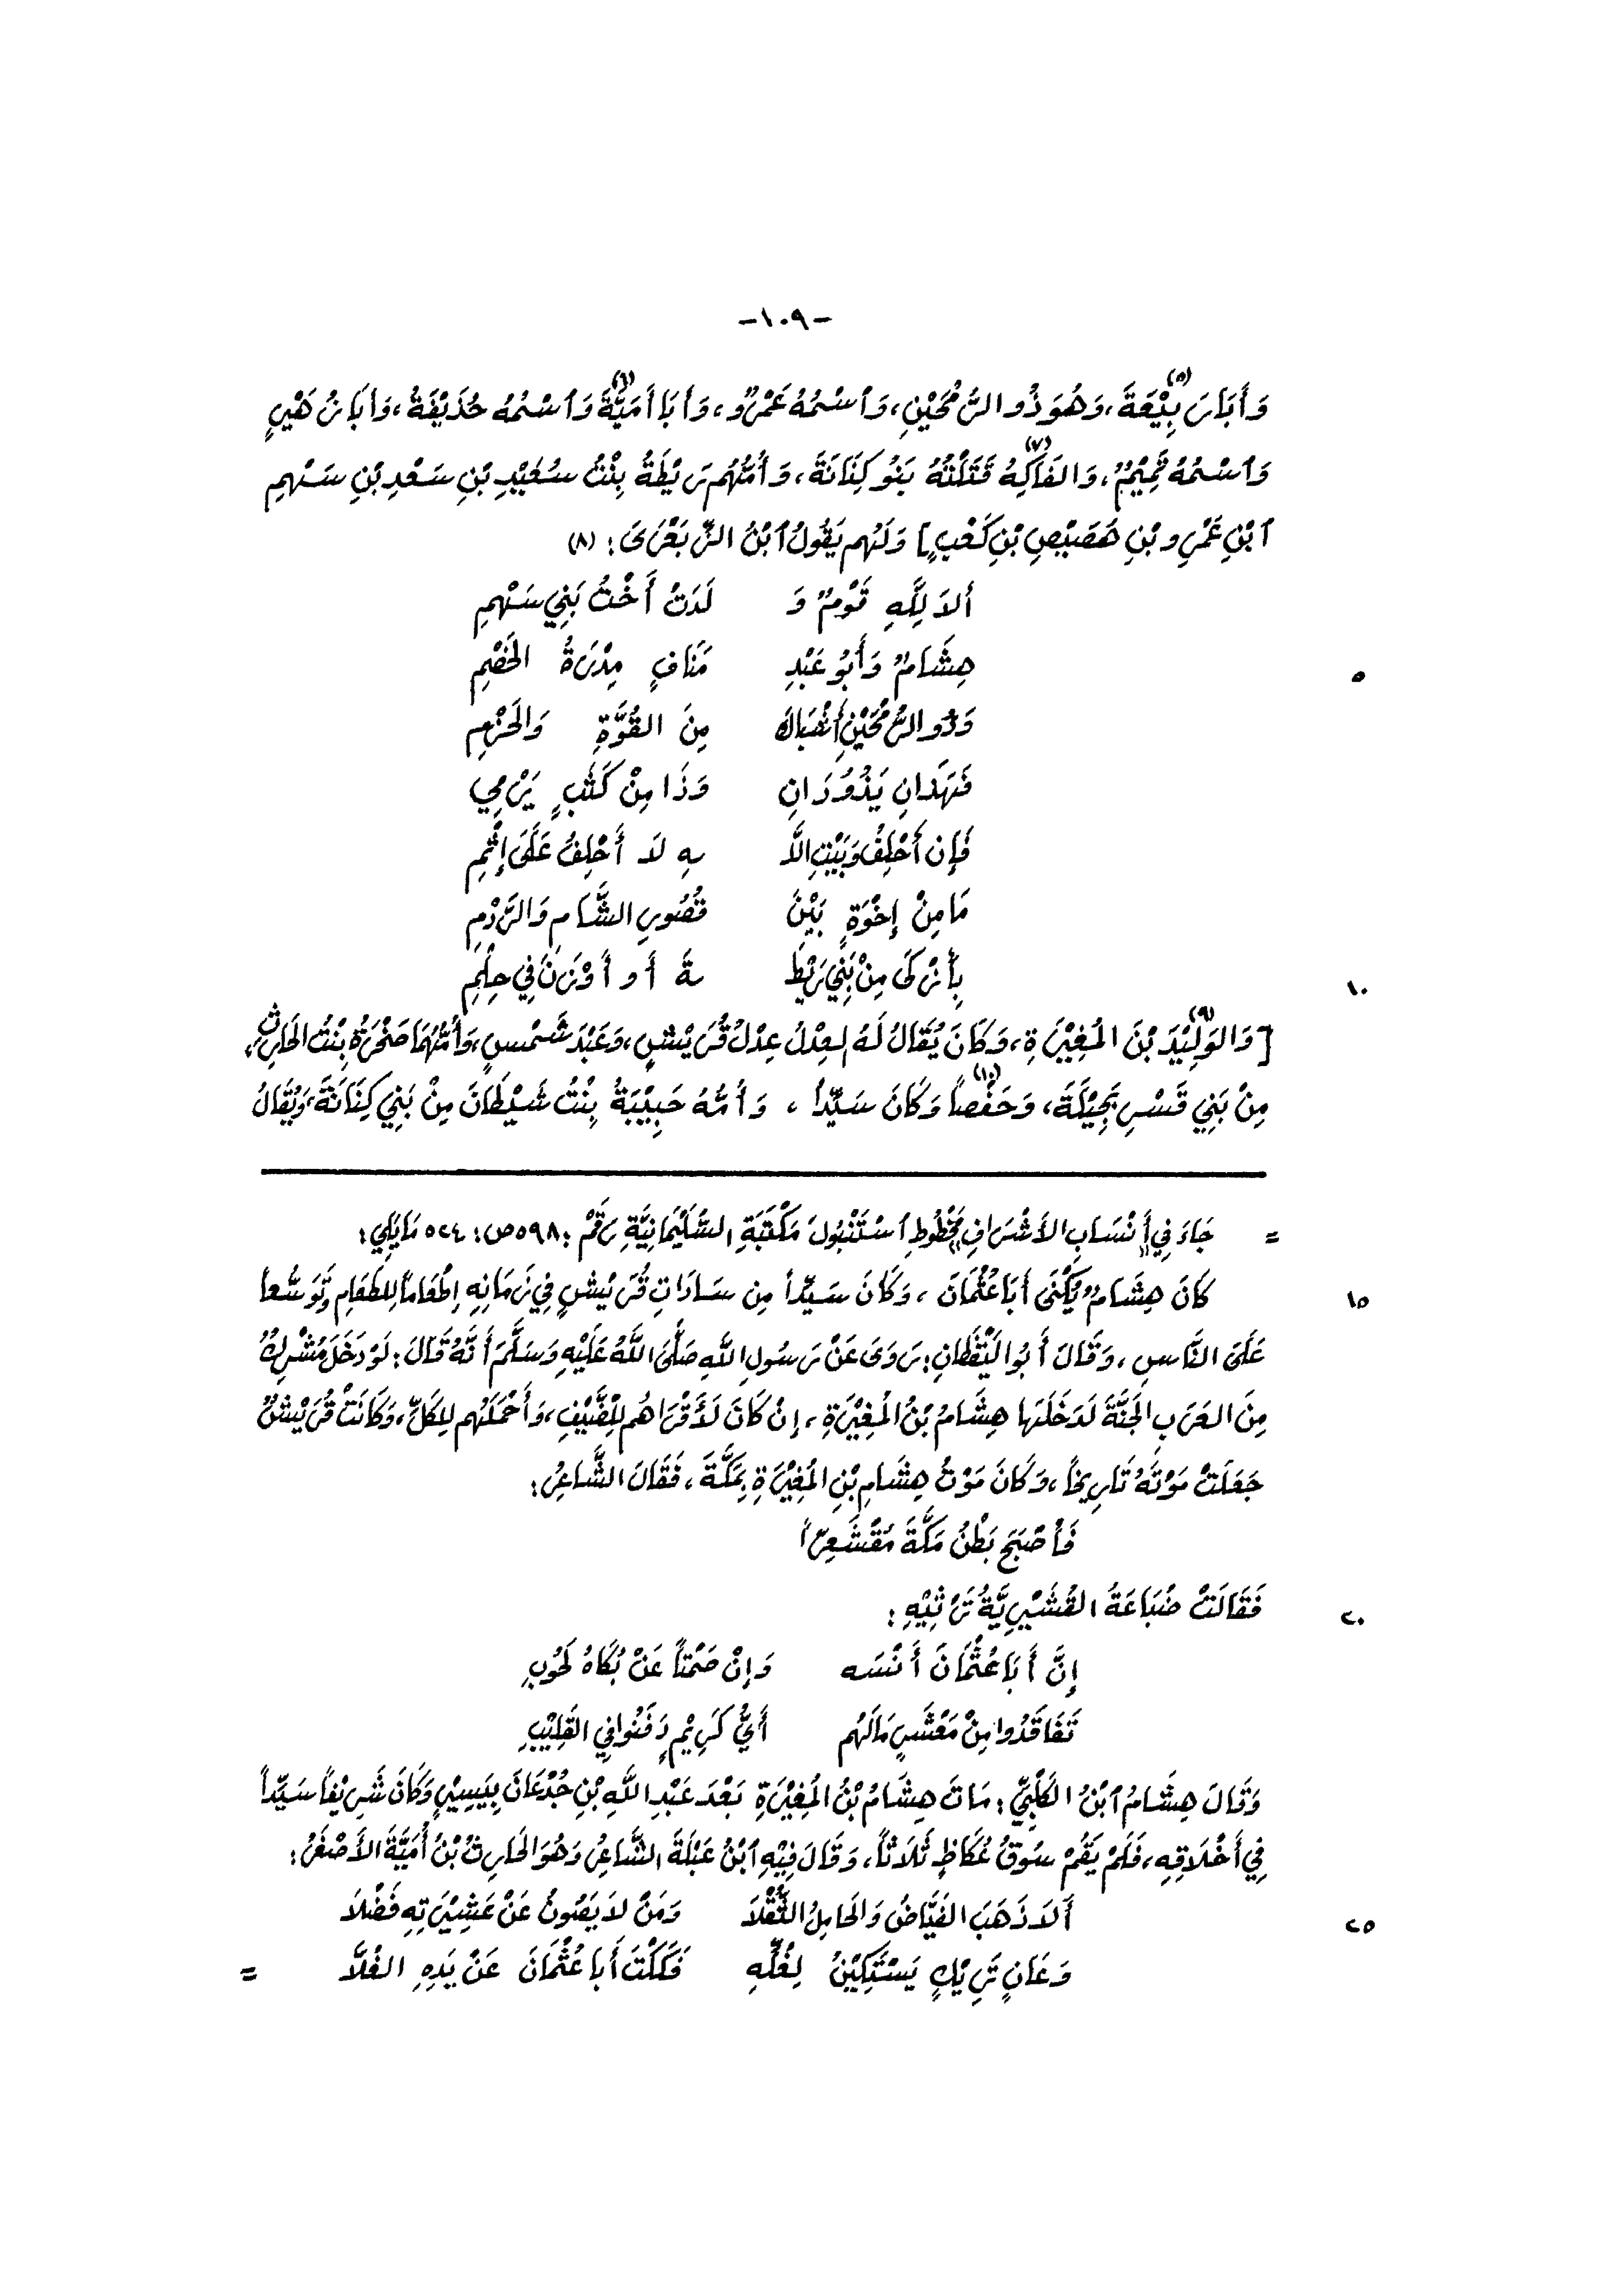 -١٠٩-
وَأَبَا رَبِيْعَةَ(٥)، وَهُوَ ذُو الرُّمْحَيْنِ، وَٱسْمُهُ عَمْرٌو، وَأَبَا أُمَيَّةَ(٦) وَٱسْمُهُ حُذَيْفَةُ، وَأَبَا زُهَيْرٍ
وَٱسْمُهُ تَمِيْمٌ، وَالفَاكِهُ(٧) قَتَلَتْهُ بَنُو كِنَانَةَ، وَأُمُّهُم رَيْطَةُ بِنْتُ سُعَيْدِ بْنِ سَعْدِ بْنِ سَهْمِ
ٱبْنِ عَمْرِو بْنِ هُصَيْصِ بْنِ كَعْبٍ] وَلَهُم يَقُولُ ٱبْنُ الزِّبَعْرَى: (٨)
أَلاَ لِلَّهِ قَوْمٌ وَ لَدَتْ أُخْتُ بَنِي سَهْمِ
هِشَامٌ وَأَبُو عَبْدِ مَنَافٍ مِدْرَةُ الخَصْمِ
٥
وَذُو الرُّمْحَيْنِ أَشْبَاكَ مِنَ القُوَّةِ وَالحَزْمِ
فَهَذَانِ يَذُوْدَانِ وَذَا مِنْ كَثَبٍ يَرْمِي
فَإِن أَحْلِفْ وَبَيْتِ اللَّ ـهِ لاَ أَحْلِفُ عَلَى إِثْمِ
مَا مِنْ إِخْوَةٍ بَيْنَ قُصُورِ الشَّامِ وَالرَّدْمِ
بِأَزْكَى مِنْ بَنِي رَيْطَ ـةَ أَو أَوْزَنَ فِي حِلْمِ
١٠
[وَالوَلِيْدَ(٩) بْنَ المُغِيْرَةِ، وَكَانَ يُقَالُ لَهُ العِدْلُ عِدْلُ قُرَيْشٍ، وَعَبْدَ شَمْسٍ، وَأُمُّهُمَا صَخْرَةُ بِنْتُ الحَارِثِ،
مِنْ بَنِي قَسْرِ بَجِيْلَةَ، وَحَفْصاً(١٠) وَكَانَ سَيِّداً، وَأُمُّهُ حَبِيْبَةُ بِنْتُ شَيْطَانَ مِنْ بَنِي كِنَانَةَ، وَيُقَالُ
= جَاءَ فِي «أَنْسَابِ الأَشْرَافِ» مَخْطُوطِ ٱسْتَنْبُولَ مَكْتَبَةِ السُّلَيْمَانِيَّةِ رَقَمْ: ٥٩٨ ص: ٥٢٤ مَايَلِي:
كَانَ هِشَامٌ يُكَنَّى أَبَا عُثْمَانَ، وَكَانَ سَيِّداً مِن سَادَاتِ قُرَيْشٍ فِي زَمَانِهِ إِطْعَاماً لِلطَّعَامِ وَتَوَسُّعاً
١٥
عَلَى النَّاسِ، وَقَالَ أَبُو اليَقْظَانِ: رَوَى عَنْ رَسُولِ اللهِ صَلَّى اللهُ عَلَيْهِ وَسَلَّمَ أَنَّهُ قَالَ: لَوْ دَخَلَ مُشْرِكٌ
مِنَ العَرَبِ الجَنَّةَ لَدَخَلَهَا هِشَامُ بْنُ المُغِيْرَةِ، إِنْ كَانَ لَأَقْرَاهُم لِلضَّيْفِ، وَأَحْمَلَهُم لِلكَلِّ، وَكَانَتْ قُرَيْشٌ
جَعَلَتْ مَوْتَهُ تَارِيخاً، وَكَانَ مَوْتُ هِشَامِ بْنِ المُغِيْرَةِ بِمَكَّةَ، فَقَالَ الشَّاعِرُ:
فَأَصْبَحَ بَطْنُ مَكَّةَ مُقْشَعِرّاً
فَقَالَتْ ضُبَاعَةُ القُشَيْرِيَّةُ تَرْثِيْهِ:
٢٠
إِنَّ أَبَا عُثْمَانَ أَنْسَه وَإِنْ صَمْتاً عَنْ بُكَاهُ لَحُوْبِ
تَفَاقَدُوا مِنْ مَعْشَرٍ مَالَهُم أَيُّ كَرِيْمٍ دَفَنُوا فِي القَلِيْبِ
وَقَالَ هِشَامُ ٱبْنُ الكَلْبِيِّ: مَاتَ هِشَامُ بْنُ المُغِيْرَةِ بَعْدَ عَبْدِ اللهِ بْنِ جُدْعَانَ بِيَسِيْرٍ وَكَانَ شَرِيْفاً سَيِّداً
فِي أَخْلاَقِهِ، فَلَمْ يَقُمْ سُوقُ عُكَاظٍ ثَلاَثاً، وَقَالَ فِيْهِ ٱبْنُ عَبْلَةَ الشَّاعِرُ وَهُوَ الحَارِثُ بْنُ أُمَيَّةَ الأَصْغَرُ:
أَلاَ ذَهَبَ الفَيَّاضُ وَالحَامِلُ الثُّقْلاَ وَمَنْ لاَ يَصُونُ عَنْ عَشِيْرَتِهِ فَضْلاَ
٢٥
وَعَانٍ تَرِيْكٍ يَسْتَكِيْنُ لِغُلِّهِ فَكَكْتَ أَبَا عُثْمَانَ عَنْ يَدِهِ الغُلاَّ =